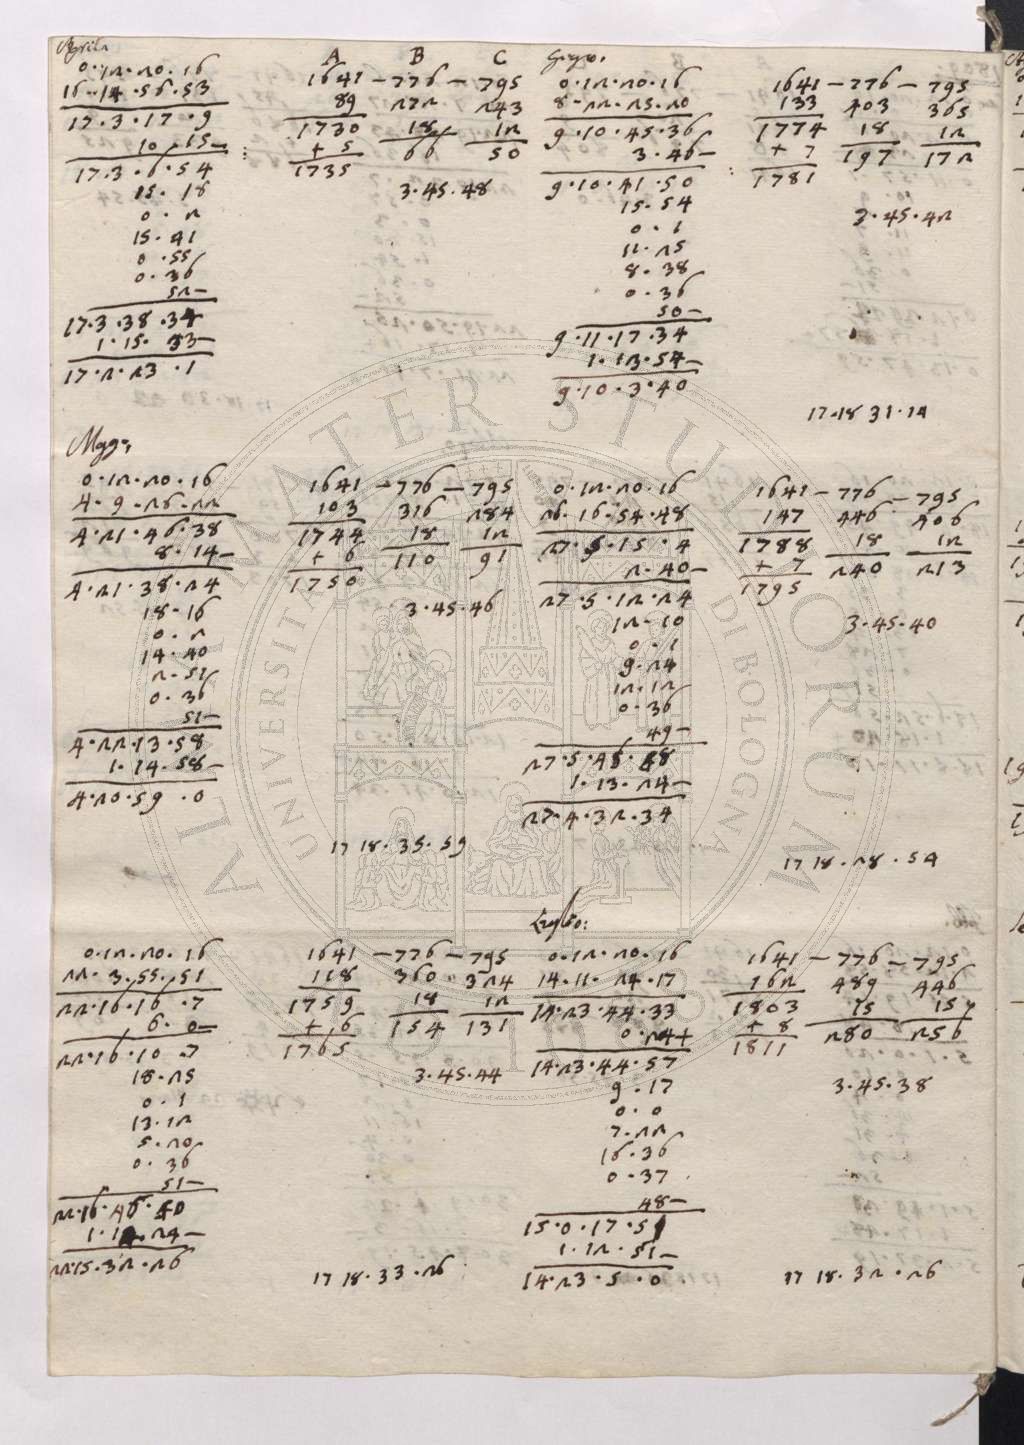 Aprile
0.12.20.16
16.14.56.53
17.3.17.9
10.15-
17.3.6.54
15.18
0.2
15.41
0.55
0.36
52-
17.3.38.34
1.15.33-
17.2.23.1
A B C
1641-776-795
89 272 243
1730 18 12
+5 66 50
1735
3.45.48
Giugno.
0.12.20.16
8.22.25.20
9.10.45.36
3.46-
9.10.41.50
15.54
0.1
11.25
8.38
0.36
50-
9.11.17.34
1.13.54-
9.10.3.40
1641-776-795
133 403 365
1774 18 12
+7 197 172
1781
3.45.42
17.18 31.14
Maggi,
0.12.20.16
4.9.26.22
4.21.46.38
8.14-
4.21.38.24
18.16
0.2
14.40
2.51
0.36
51-
4.22.13.58
1.14.58-
4.20.59.0
1641-776-795
103 316 284
1744 18 12
+6 110 91
1750
3.45.46
17 18.35.59
0.12.20.16
26.16.54.48
27.5.15.4
2.40-
27.5.12.24
12.10
0.1
9.24
12.12
0.36
49-
27.5.45.48
1.13.24-
27.4.32.34
1641-776-795
147 446 406
1788 18 12
+7 240 213
1795
3.45.40
17 18.28.54
0.12.20.16
22.3.55.51
22.16.16.7
6.0-
22.16.10.7
18.25
0.1
13.12
5.20
0.36
51-
22.16.46.40
1.14.24-
22.15.32.26
1641-776-795
118 360 324
1759 18 12
+6 154 131
1765
3.45.44
17 18.33.26
Luglio:
0.12.20.16
14.11.24.17
14.23.44.33
0.24+
14.23.44.57
9.17
0.0
7.22
16.36
0.37
48-
15.0.17.51
1.12.51-
14.23.5.0
1641-776-795
162 489 446
1803 15 157
+8 280 256
1811
3.45.38
17 18.32.26
ALMA MATER STUDIORUM
UNIVERSITÀ DI BOLOGNA